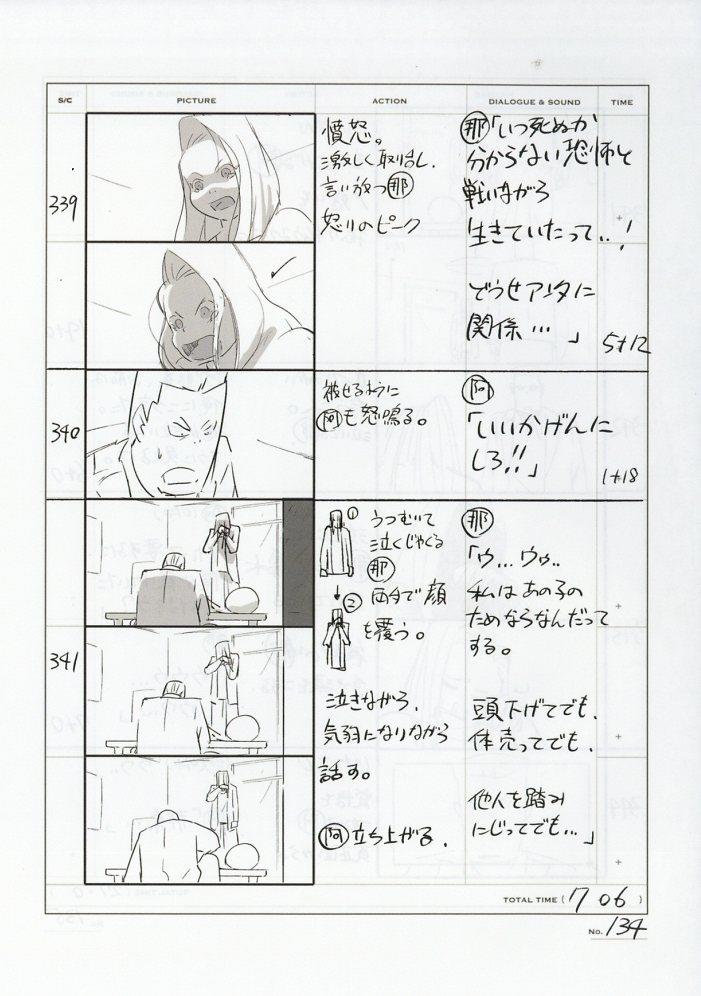 S/C
PICTURE
ACTION
DIALOGUE & SOUND
TIME
339
憤怒。
激しく取乱し、
言い放つ那
怒りのピーク
那「いつ死ぬか
分からない恐怖と
戦いながら
生きていたって‥!
どうせアンタに
関係…」
5+12
340
被せるように
阿も怒鳴る。
阿
「いいかげんに
しろ!!」
1+18
341
①
うつむいて
泣くじゃくる
那
②
両手で顔
を覆う。
泣きながら、
気弱になりながら
話す。
阿立ち上がる。
那
「ウ…ウゥ…
私はあの子の
ためならなんだって
する。
頭下げてでも、
体売ってでも、
他人を踏み
にじってでも…」
TOTAL TIME ( 7 06 )
No. 134